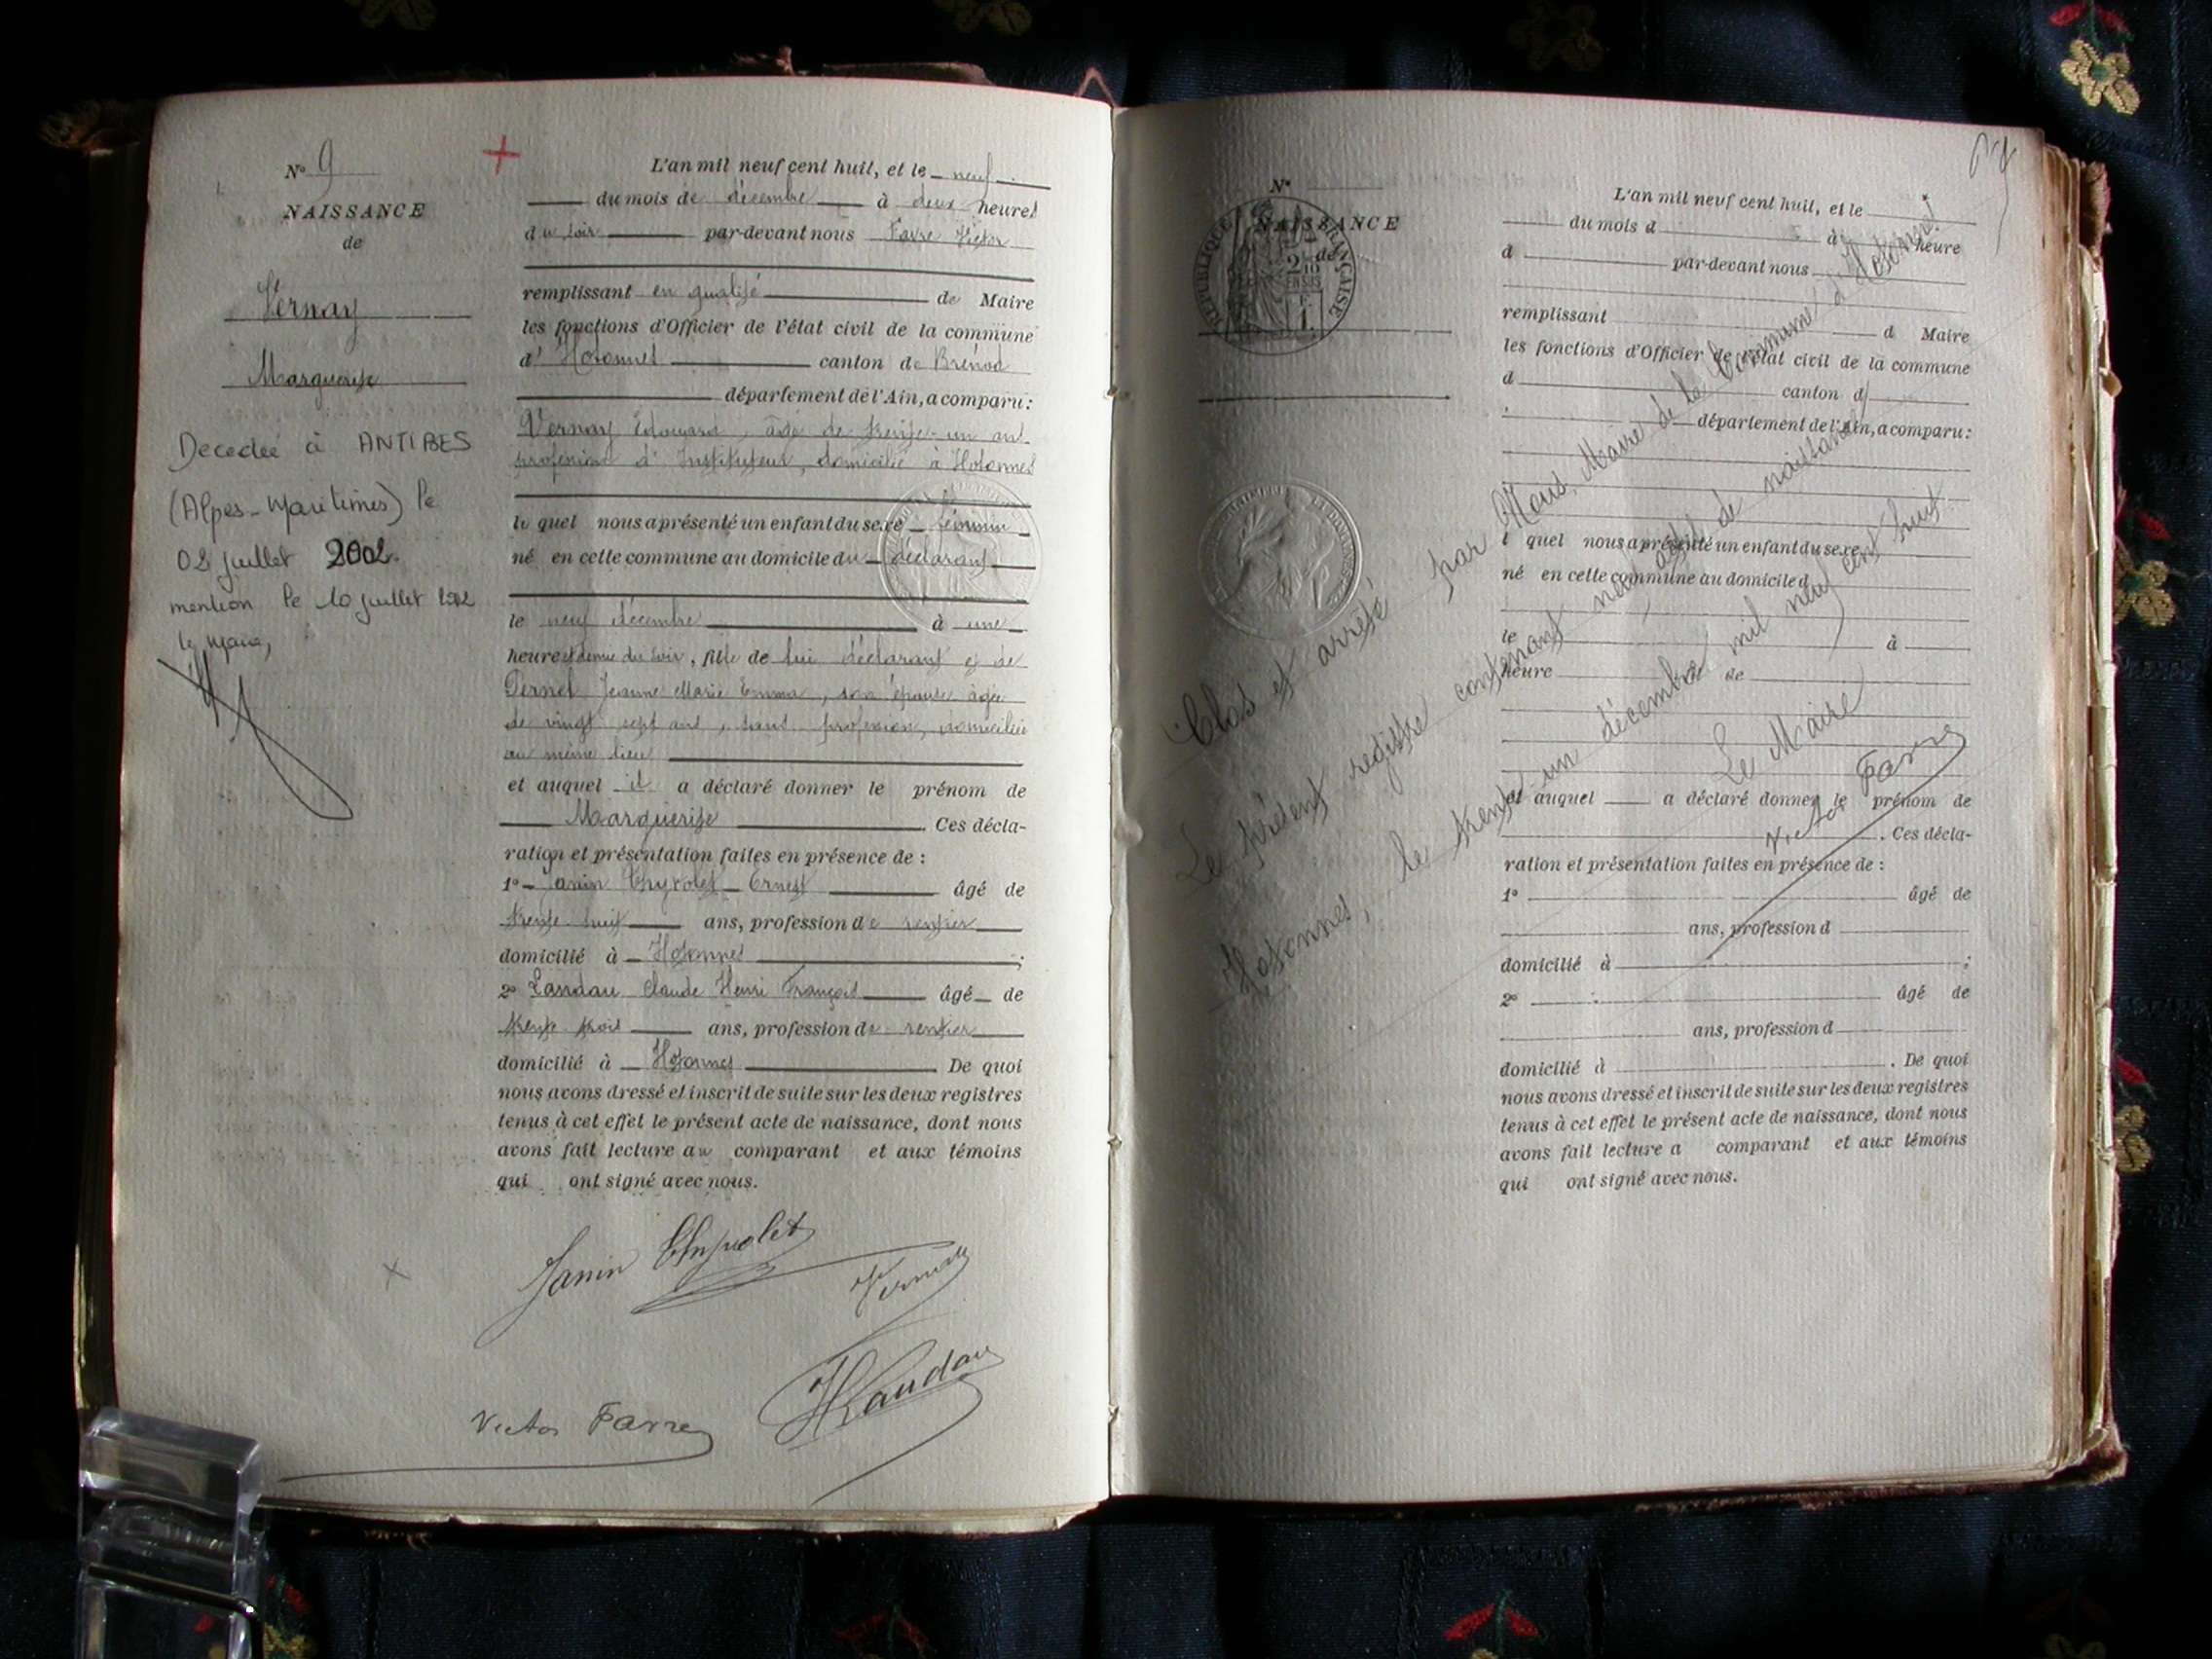 N° 9
NAISSANCE
de
Vernay
Marguerite
Decedée à ANTIBES
(Alpes-Maritimes) le
02 juillet 2002.
mention le 10 juillet 2002
le Maire,
L'an mil neuf cent huit, et le neuf
du mois de décembre à deux heures
du soir par-devant nous Favre Victor
remplissant en qualité de Maire
les fonctions d'Officier de l'état civil de la commune
d'Hotonnes canton de Brénod
département de l'Ain, a comparu :
Vernay Edouard, âgé de trente-un ans
profession d'Instituteur, domicilié à Hotonnes
le quel nous a présenté un enfant du sexe féminin
né en cette commune au domicile du déclarant
le neuf décembre à une
heure et demie du soir, fille de lui déclarant et de
Pernet Jeanne Marie Emma, son épouse âgée
de vingt sept ans, sans profession, domiciliée
au même lieu
et auquel il a déclaré donner le prénom de
Marguerite. Ces décla-
ration et présentation faites en présence de :
1° Janin Chypolet Ernest âgé de
trente huit ans, profession de rentier
domicilié à Hotonnes ;
2° Landau Claude Henri François âgé de
trente trois ans, profession de rentier
domicilié à Hotonnes De quoi
nous avons dressé et inscrit de suite sur les deux registres
tenus à cet effet le présent acte de naissance, dont nous
avons fait lecture au comparant et aux témoins
qui ont signé avec nous.
Janin
Vernay
HLandau
Victor Favre
N°
NAISSANCE
de
RÉPUBLIQUE FRANÇAISE
2/10
EN SUS
F.
1.
L'an mil neuf cent huit, et le
du mois d à heure
d par-devant nous
remplissant d Maire
les fonctions d'Officier de l'état civil de la commune
d canton d
département de l'Ain, a comparu :
l quel nous a présenté un enfant du sexe
né en cette commune au domicile d
le à
heure de
et auquel a déclaré donner le prénom de
. Ces décla-
ration et présentation faites en présence de :
1° âgé de
ans, profession d
domicilié à ;
2° âgé de
ans, profession d
domicilié à . De quoi
nous avons dressé et inscrit de suite sur les deux registres
tenus à cet effet le présent acte de naissance, dont nous
avons fait lecture a comparant et aux témoins
qui ont signé avec nous.
Clos et arrêté par Nous, Maire de la Commune d'Hotonnes
Le présent registre contenant neuf actes de naissance
Hotonnes, le trente un décembre mil neuf cent huit
Le Maire
Victor Favre